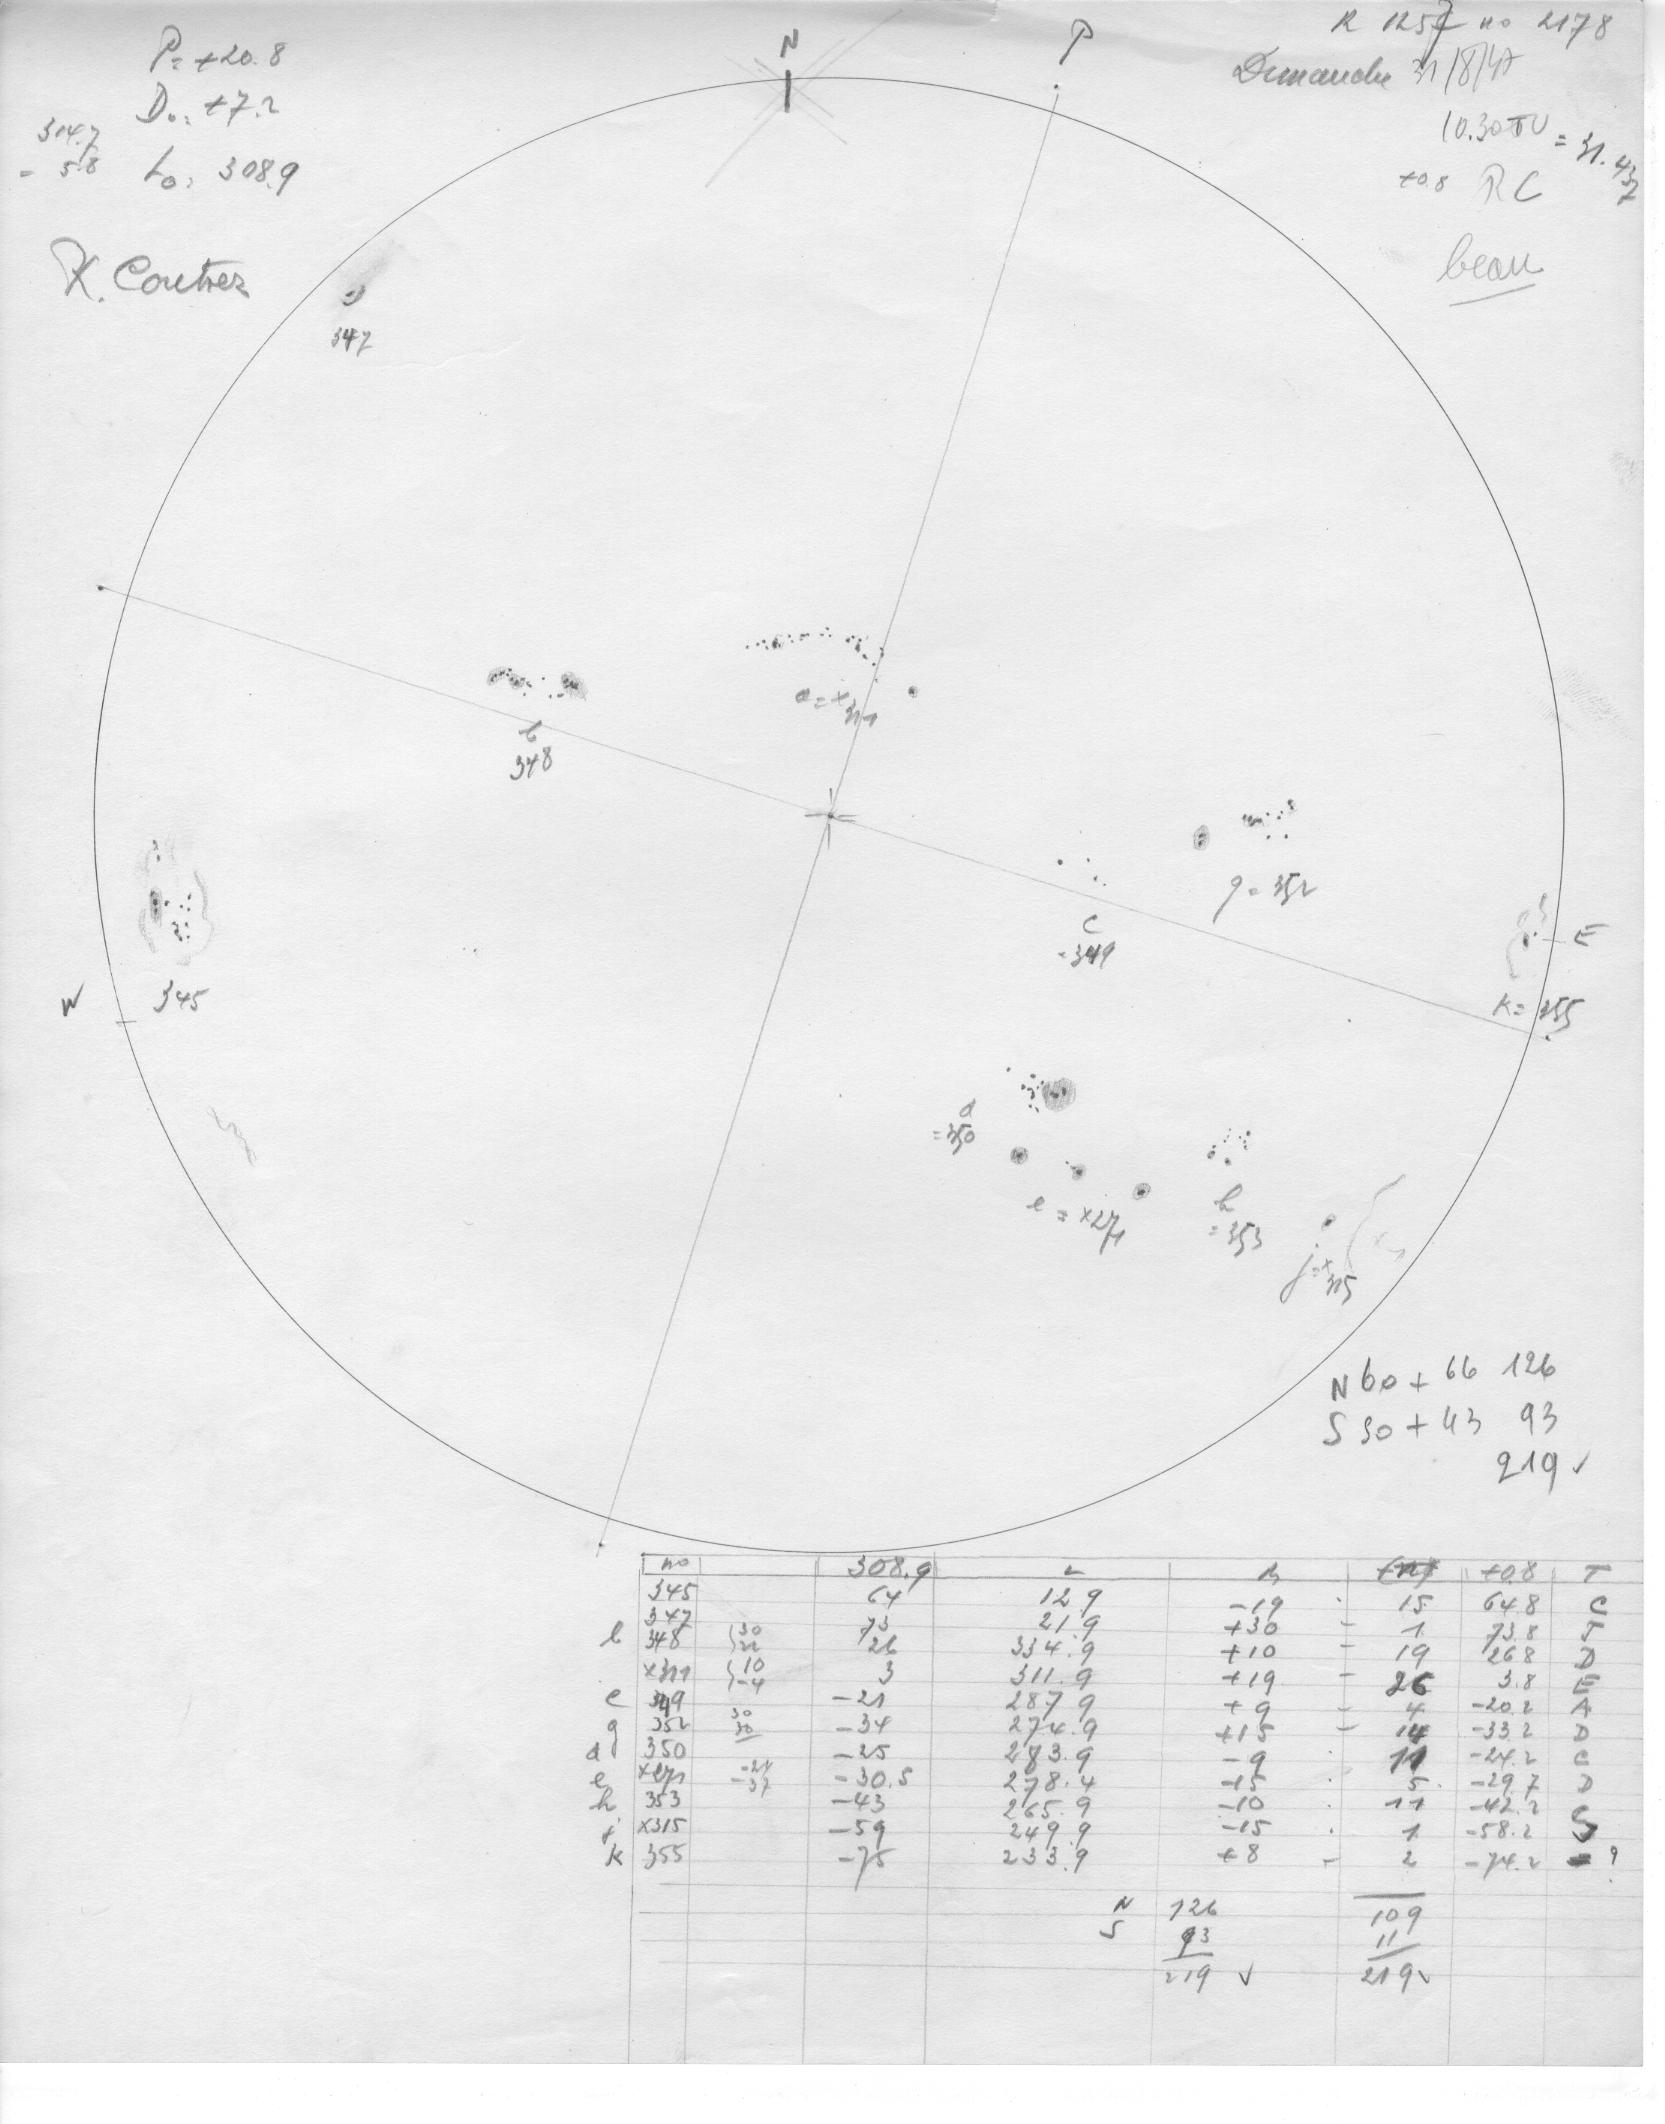 P= +20.8
Do= +7.2
314.7
- 5.8
Lo= 308.9
R. Coutrez
N
P
no 2178
Dimanche 31/8/47
10.30 TU = 31.437
+0.8 RC
beau
347
b
348
a = x311
g = 352
c
=349
E
K= 355
W
345
d
=350
e = x271
h
=353
j = x315
N 60 + 66 126
S 50 + 43 93
219 ✓
no 308.9 L B +0.8 T
345 64 12.9 -19 15 64.8 C
347 73 21.9 +30 - 1 73.8 J
b 348 30 22 26 334.9 +10 - 19 26.8 D
x311 10 -4 3 311.9 +19 - 26 3.8 E
c 349 -21 287.9 +9 - 4 -20.2 A
g 352 30 38 -34 274.9 +15 - 14 -33.2 D
d 350 -25 283.9 -9 11 -24.2 C
e x271 -24 -37 -30.5 278.4 -15 5 -29.7 D
h 353 -43 265.9 -10 11 -42.2 C
j x315 -59 249.9 -15 1 -58.2 J
k 355 -75 233.9 +8 - 2 -74.2 - ?
N 126 109
S 93 11
219 ✓ 219 ✓